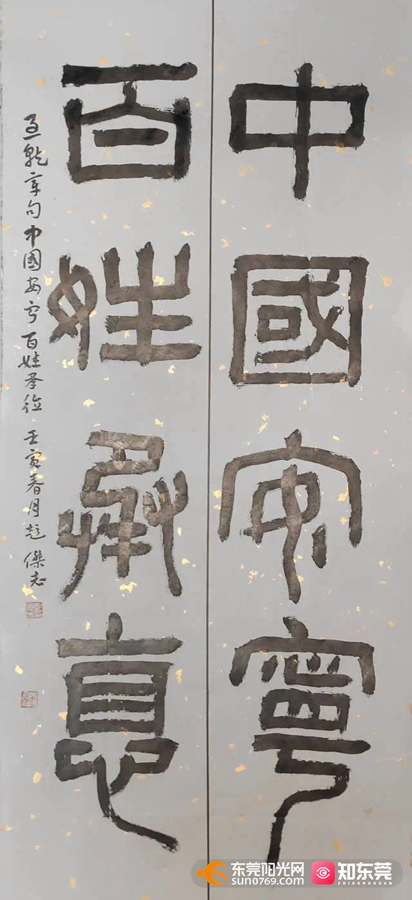 中國安寧
百姓承悳
句中國安宁百姓承德 壬寅春月赵傑志
东莞阳光网
sun0769.com
知东莞